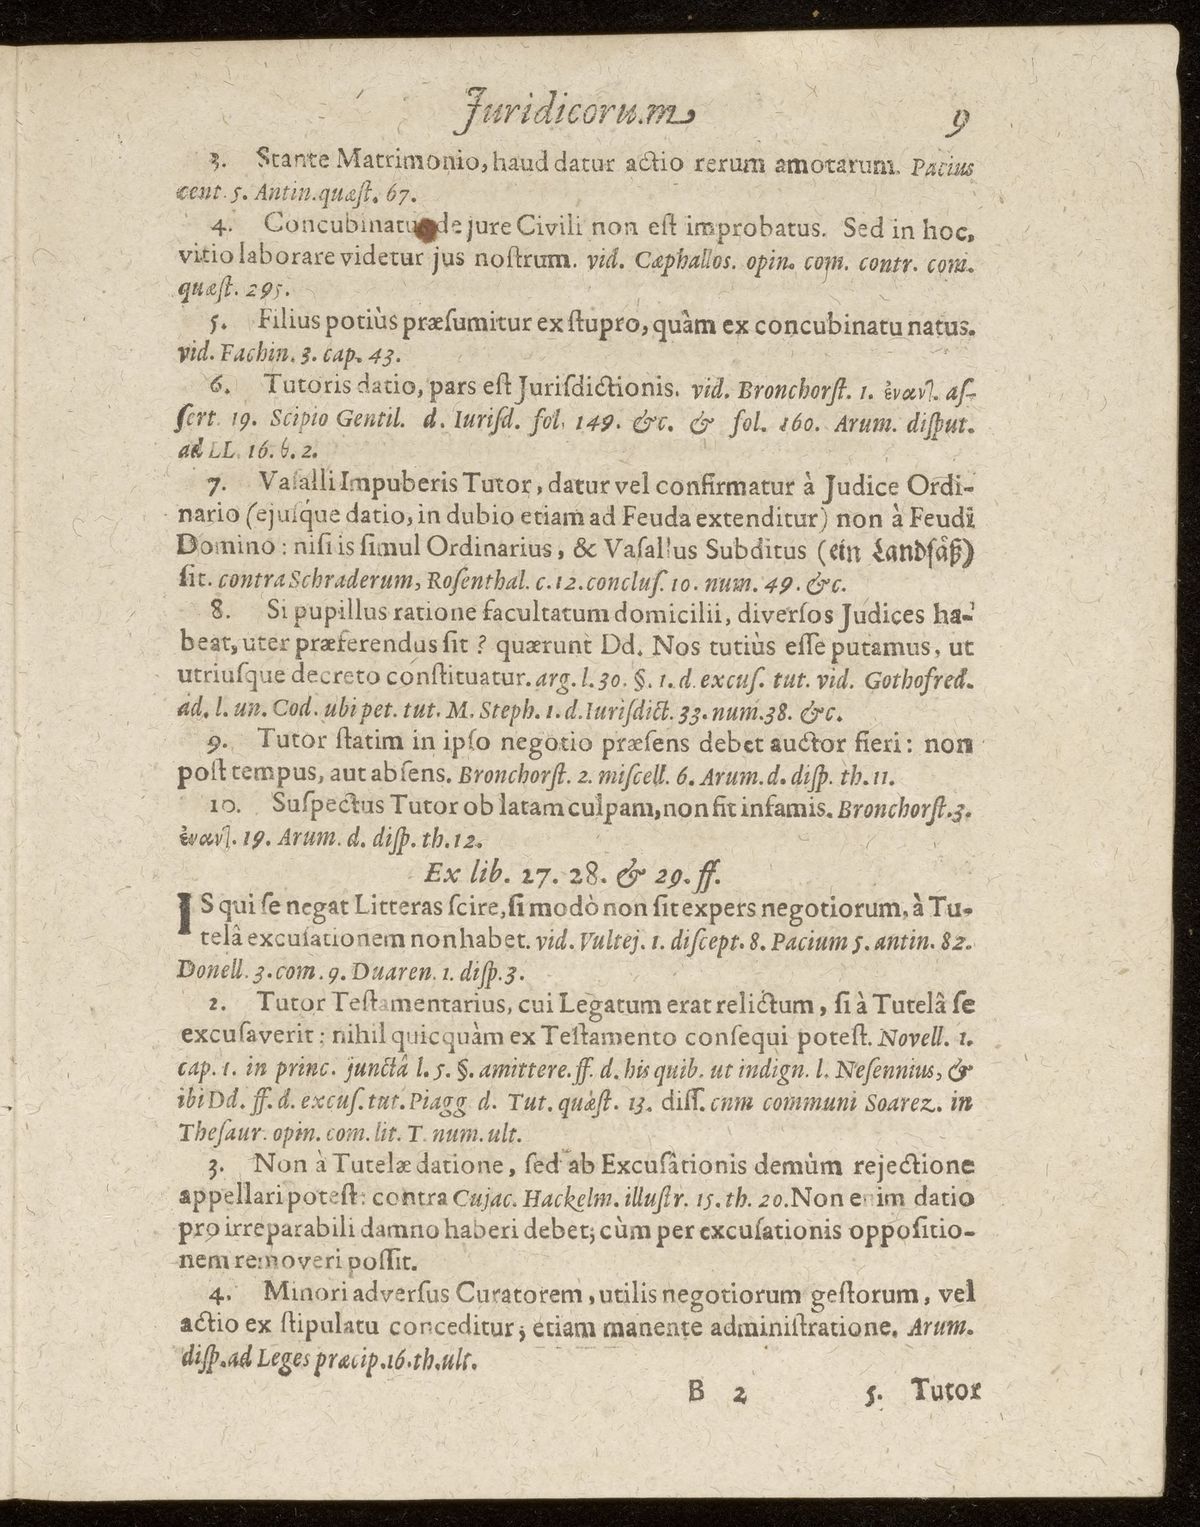 Juridicorum 9
3. Stante Matrimonio, haud datur actio rerum amotarum. Pacius
cent. 5. Antin. quæſt. 67.
4. Concubinatus de jure Civili non eſt improbatus. Sed in hoc,
vitio laborare videtur jus noſtrum. vid. Cæphallos. opin. com. contr. com.
quæſt. 295.
5. Filius potiùs præſumitur ex ſtupro, quàm ex concubinatu natus.
vid. Fachin. 3. cap. 43.
6. Tutoris datio, pars eſt Juriſdictionis. vid. Bronchorſt. 1. ἐναντ. aſ-
ſert. 19. Scipio Gentil. d. Iuriſd. fol. 149. &c. & fol. 160. Arum. diſput.
ad LL. 16. 2.
7. Vaſalli Impuberis Tutor, datur vel confirmatur à Judice Ordi-
nario (ejuſque datio, in dubio etiam ad Feuda extenditur) non à Feudi
Domino: niſi is ſimul Ordinarius, & Vaſallus Subditus (ein Landſåß)
ſit. contra Schraderum, Roſenthal. c. 12. concluſ. 10. num. 49. &c.
8. Si pupillus ratione facultatum domicilii, diverſos Judices ha-
beat, uter præferendus ſit? quærunt Dd. Nos tutiùs eſſe putamus, ut
utriuſque decreto conſtituatur. arg. l. 30. §. 1. d. excuſ. tut. vid. Gothofred.
ad. l. un. Cod. ubi pet. tut. M. Steph. 1. d. Iuriſdict. 33. num. 38. &c.
9. Tutor ſtatim in ipſo negotio præſens debet auctor fieri: non
poſt tempus, aut abſens. Bronchorſt. 2. miſcell. 6. Arum. d. diſp. th. 11.
10. Suſpectus Tutor ob latam culpam, non fit infamis. Bronchorſt. 3.
ἐναντ. 19. Arum. d. diſp. th. 12.
Ex lib. 27. 28. & 29. ff.
IS qui ſe negat Litteras ſcire, ſi modò non ſit expers negotiorum, à Tu-
telâ excuſationem non habet. vid. Vultej. 1. diſcept. 8. Pacium 5. antin. 82.
Donell. 3. com. 9. Duaren. 1. diſp. 3.
2. Tutor Teſtamentarius, cui Legatum erat relictum, ſi à Tutelâ ſe
excuſaverit: nihil quicquàm ex Teſtamento conſequi poteſt. Novell. 1.
cap. 1. in princ. junctâ l. 5. §. amittere. ff. d. his quib. ut indign. l. Neſennius, &
ibi Dd. ff. d. excuſ. tut. Piagg. d. Tut. quæſt. 13. diſſ. cnm communi Soarez. in
Theſaur. opin. com. lit. T. num. ult.
3. Non à Tutelæ datione, ſed ab Excuſationis demùm rejectione
appellari poteſt: contra Cujac. Hackelm. illuſtr. 15. th. 20. Non enim datio
pro irreparabili damno haberi debet; cùm per excuſationis oppoſitio-
nem removeri poſſit.
4. Minori adverſus Curatorem, utilis negotiorum geſtorum, vel
actio ex ſtipulatu conceditur; etiam manente adminiſtratione. Arum.
diſp. ad Leges præcip. 16. th. ult.
B 2 5. Tutor